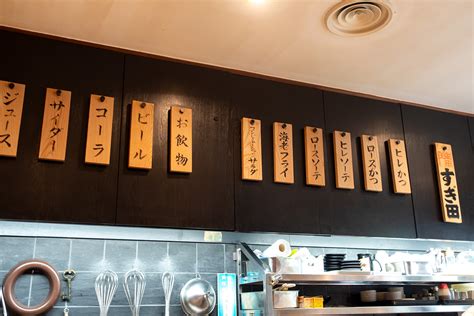 すき田
ヒレかつ
ロースかつ
ヒレソーテ
ロースソーテ
海老フライ
サラダ
お飲物
ビール
コーラ
サイダー
ジュース